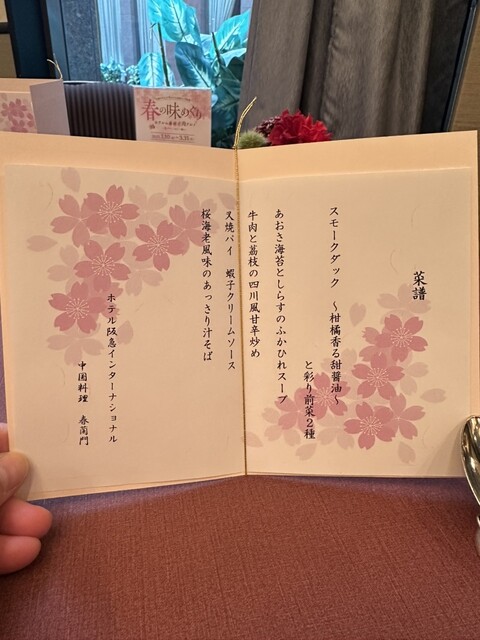 菜譜
スモークダック　～柑橘香る甜醤油～
と彩り前菜２種
あおさ海苔としらすのふかひれスープ
牛肉と荔枝の四川風甘辛炒め
叉焼パイ　蝦子クリームソース
桜海老風味のあっさり汁そば
ホテル阪急インターナショナル
中国料理　春蘭門
春の味めぐり